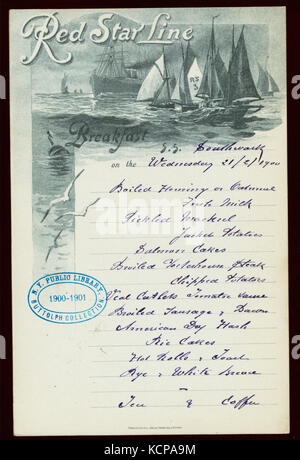 Red Star Line
RS
3
Breakfast
S.S. Southwark
on the Wednesday 21/2/1900
Boiled Hominy or Oatmeal
Fresh Milk
Pickled Mackerel
Jacket Potatoes
Salmon Cakes
Broiled Porterhouse Steak
Chipped Potatoes
Veal Cutlets Tomato Sauce
Broiled Sausage & Bacon
American Dry Hash
Rice Cakes
Hot Rolls & Toast
Rye & White Bread
Tea & Coffee
N.Y. PUBLIC LIBRARY
1900-1901
BUTTOLPH COLLECTION
alamy
Image ID: KCPA9M
www.alamy.com